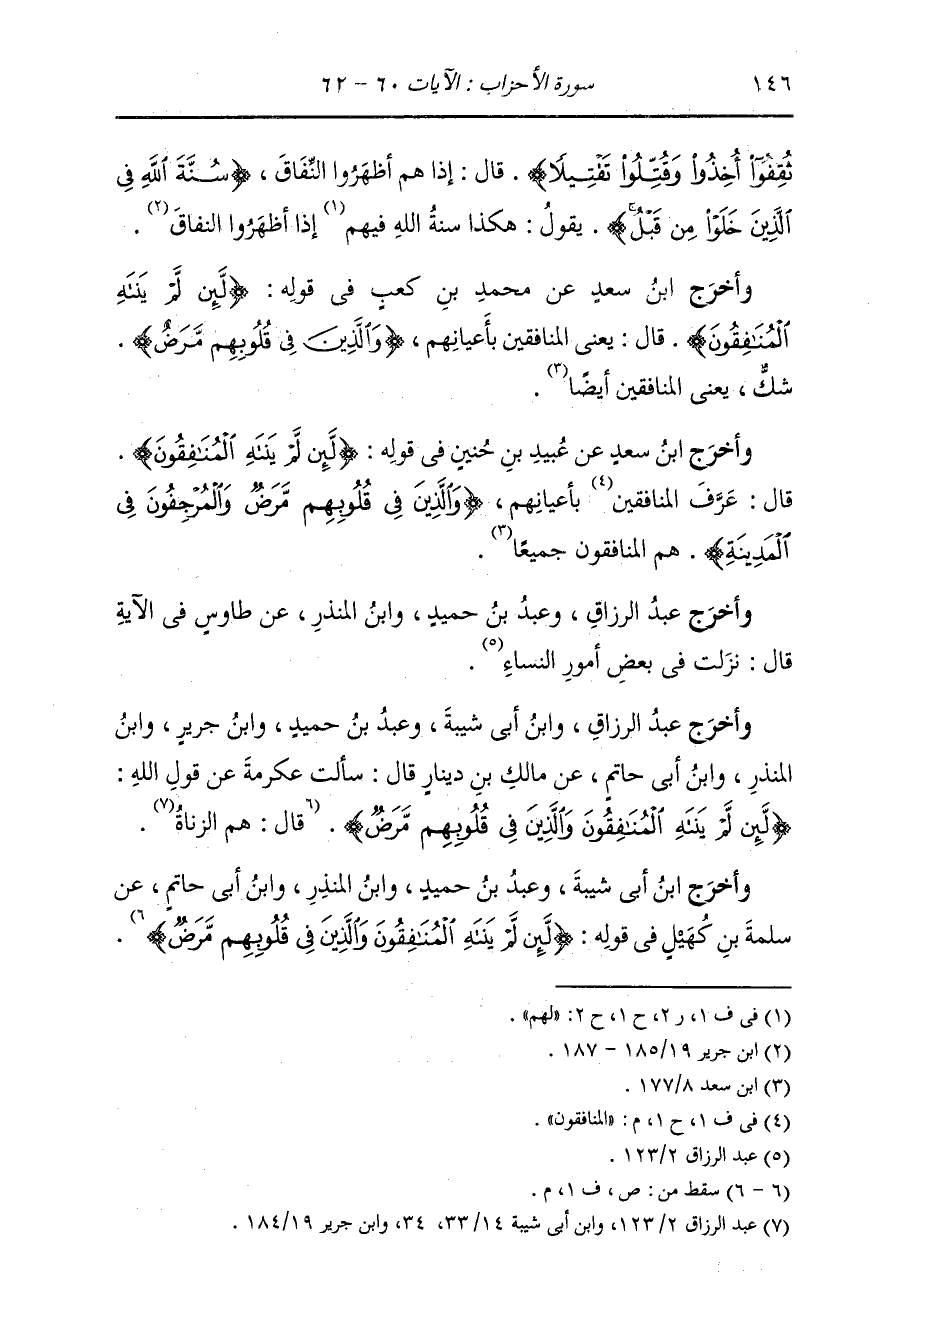 ١٤٦ سورة الأحزاب : الآيات ٦٠ - ٦٢
ثُقِفُوٓا۟ أُخِذُوا۟ وَقُتِّلُوا۟ تَقْتِيلًا﴾ . قال : إذا هم أظهَرُوا النِّفَاقَ ، ﴿سُنَّةَ ٱللَّهِ فِى
ٱلَّذِينَ خَلَوْا۟ مِن قَبْلُ﴾ . يقولُ : هكذا سنةُ اللهِ فيهم(١) إذا أظهَرُوا النفاقَ(٢) .
وأخرَج ابنُ سعدٍ عن محمدِ بنِ كعبٍ فى قولِه : ﴿لَّئِن لَّمْ يَنتَهِ
ٱلْمُنَٰفِقُونَ﴾ . قال : يعنى المنافقين بأَعيانِهم ، ﴿وَٱلَّذِينَ فِى قُلُوبِهِم مَّرَضٌ﴾ .
شكٌّ ، يعنى المنافقين أيضًا(٣) .
وأخرَج ابنُ سعدٍ عن عُبيدِ بنِ حُنينٍ فى قولِه : ﴿لَّئِن لَّمْ يَنتَهِ ٱلْمُنَٰفِقُونَ﴾ .
قال : عَرَّفَ المنافقين(٤) بأعيانِهم ، ﴿وَٱلَّذِينَ فِى قُلُوبِهِم مَّرَضٌ وَٱلْمُرْجِفُونَ فِى
ٱلْمَدِينَةِ﴾ . هم المنافقون جميعًا(٣) .
وأخرَج عبدُ الرزاقِ ، وعبدُ بنُ حميدٍ ، وابنُ المنذرِ ، عن طاوسٍ فى الآيةِ
قال : نزَلت فى بعضِ أمورِ النساءِ(٥) .
وأخرَج عبدُ الرزاقِ ، وابنُ أبى شيبةَ ، وعبدُ بنُ حميدٍ ، وابنُ جريرٍ ، وابنُ
المنذرِ ، وابنُ أبى حاتمٍ ، عن مالكِ بنِ دينارٍ قال : سألت عكرمةَ عن قولِ اللهِ :
﴿لَّئِن لَّمْ يَنتَهِ ٱلْمُنَٰفِقُونَ وَٱلَّذِينَ فِى قُلُوبِهِم مَّرَضٌ﴾ . (٦قال : هم الزناةُ(٧) .
وأخرَج ابنُ أبى شيبةَ ، وعبدُ بنُ حميدٍ ، وابنُ المنذرِ ، وابنُ أبى حاتمٍ ، عن
سلمةَ بنِ كُهَيْلٍ فى قولِه : ﴿لَّئِن لَّمْ يَنتَهِ ٱلْمُنَٰفِقُونَ وَٱلَّذِينَ فِى قُلُوبِهِم مَّرَضٌ﴾٦) .
(١) فى ف ١، ر ٢، ح ١، ح ٢: «لهم» .
(٢) ابن جرير ١٩/ ١٨٥ - ١٨٧ .
(٣) ابن سعد ٨/ ١٧٧ .
(٤) فى ف ١، ح ١، م : «المنافقون» .
(٥) عبد الرزاق ٢/ ١٢٣ .
(٦ - ٦) سقط من : ص ، ف ١، م .
(٧) عبد الرزاق ٢/ ١٢٣، وابن أبى شيبة ١٤/ ٣٣، ٣٤، وابن جرير ١٩/ ١٨٤ .